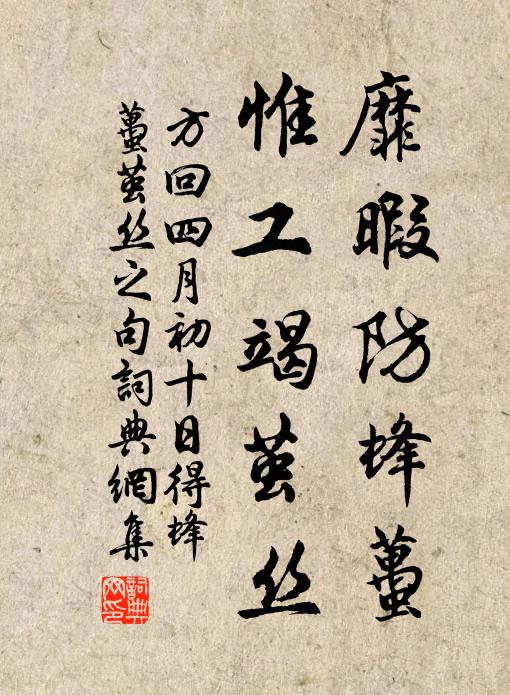 靡暇防蜂蠆
惟工竭茧丝
方回四月初十日得蜂
蠆茧丝之句詞典網集
詞典网印